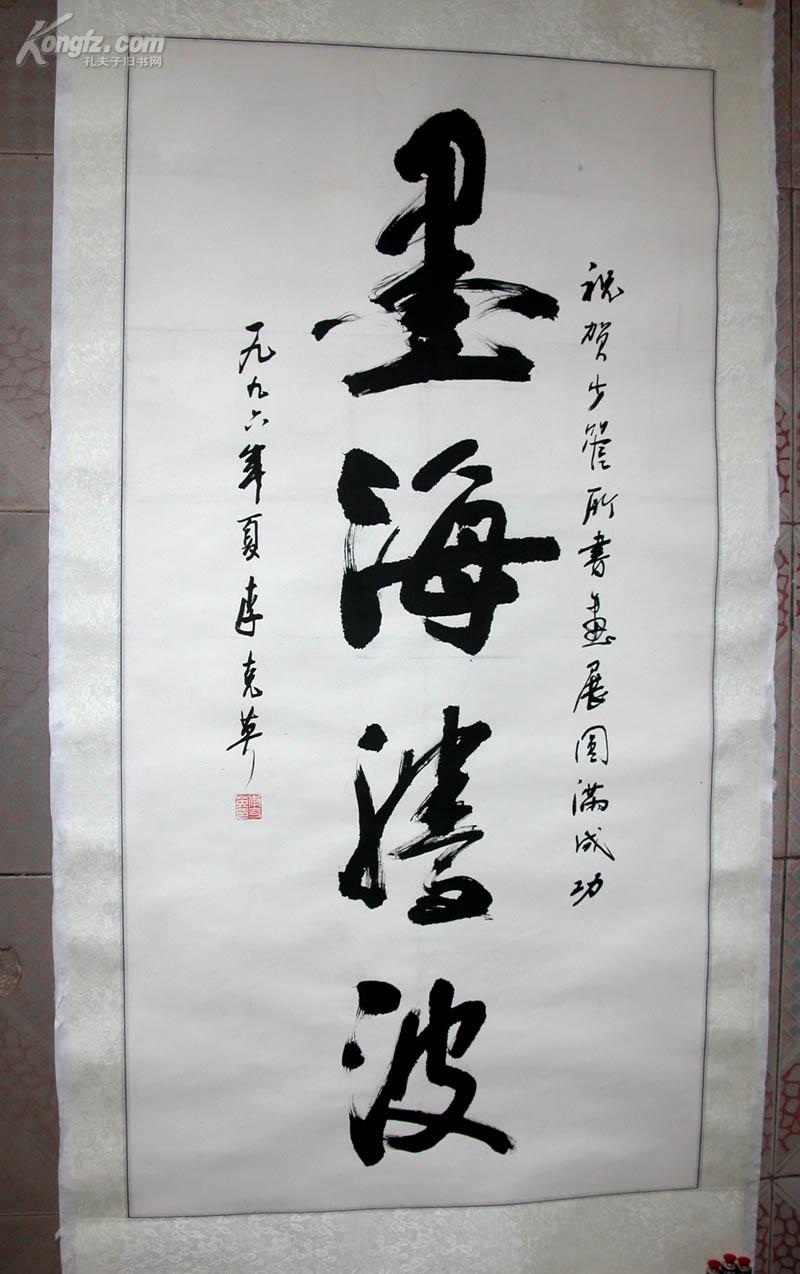 Kongfz.com
孔夫子旧书网
祝贺少管所书画展圆满成功
墨海腾波
一九九六年夏李克英